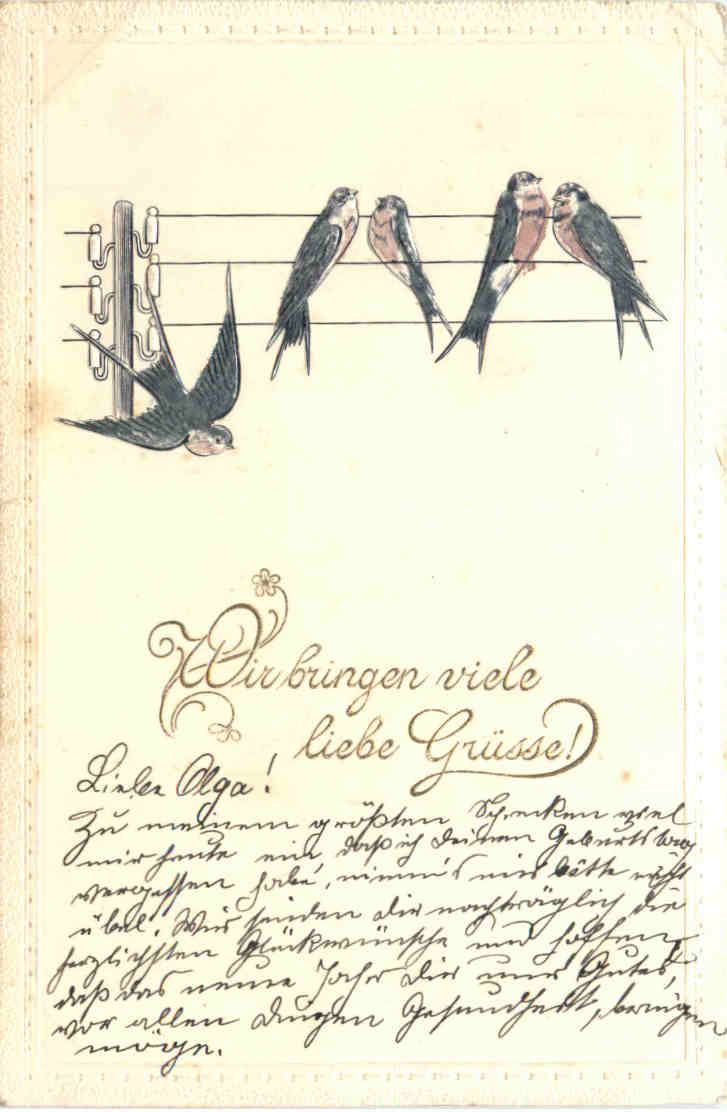 Wir bringen viele
liebe Grüsse!
Liebe Olga!
Zu meinem größten Schrecken viel
mir heute ein, daß ich deinen Geburtstag
vergessen habe, nimm's mir bitte nicht
übel. Wir senden dir nachträglich die
herzlichsten Glückwünsche und hoffen,
daß das neue Jahr dir nur Gutes,
vor allen Dingen Gesundheit, bringen
möge.